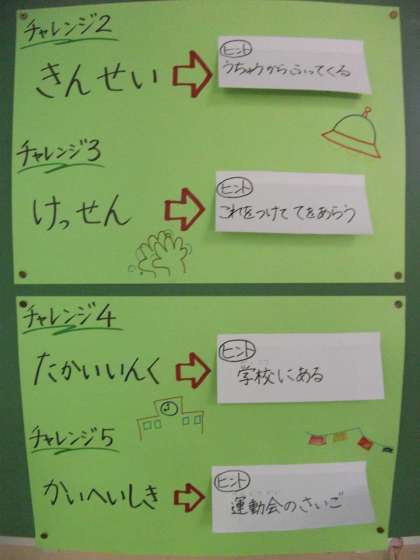 チャレンジ2
きんせい
ヒント
うちゅうからふってくる
チャレンジ3
けっせん
ヒント
これをつけててをあらう
チャレンジ4
たかいいんく
ヒント
学校にある
チャレンジ5
かいへいしき
ヒント
運動会のさいご